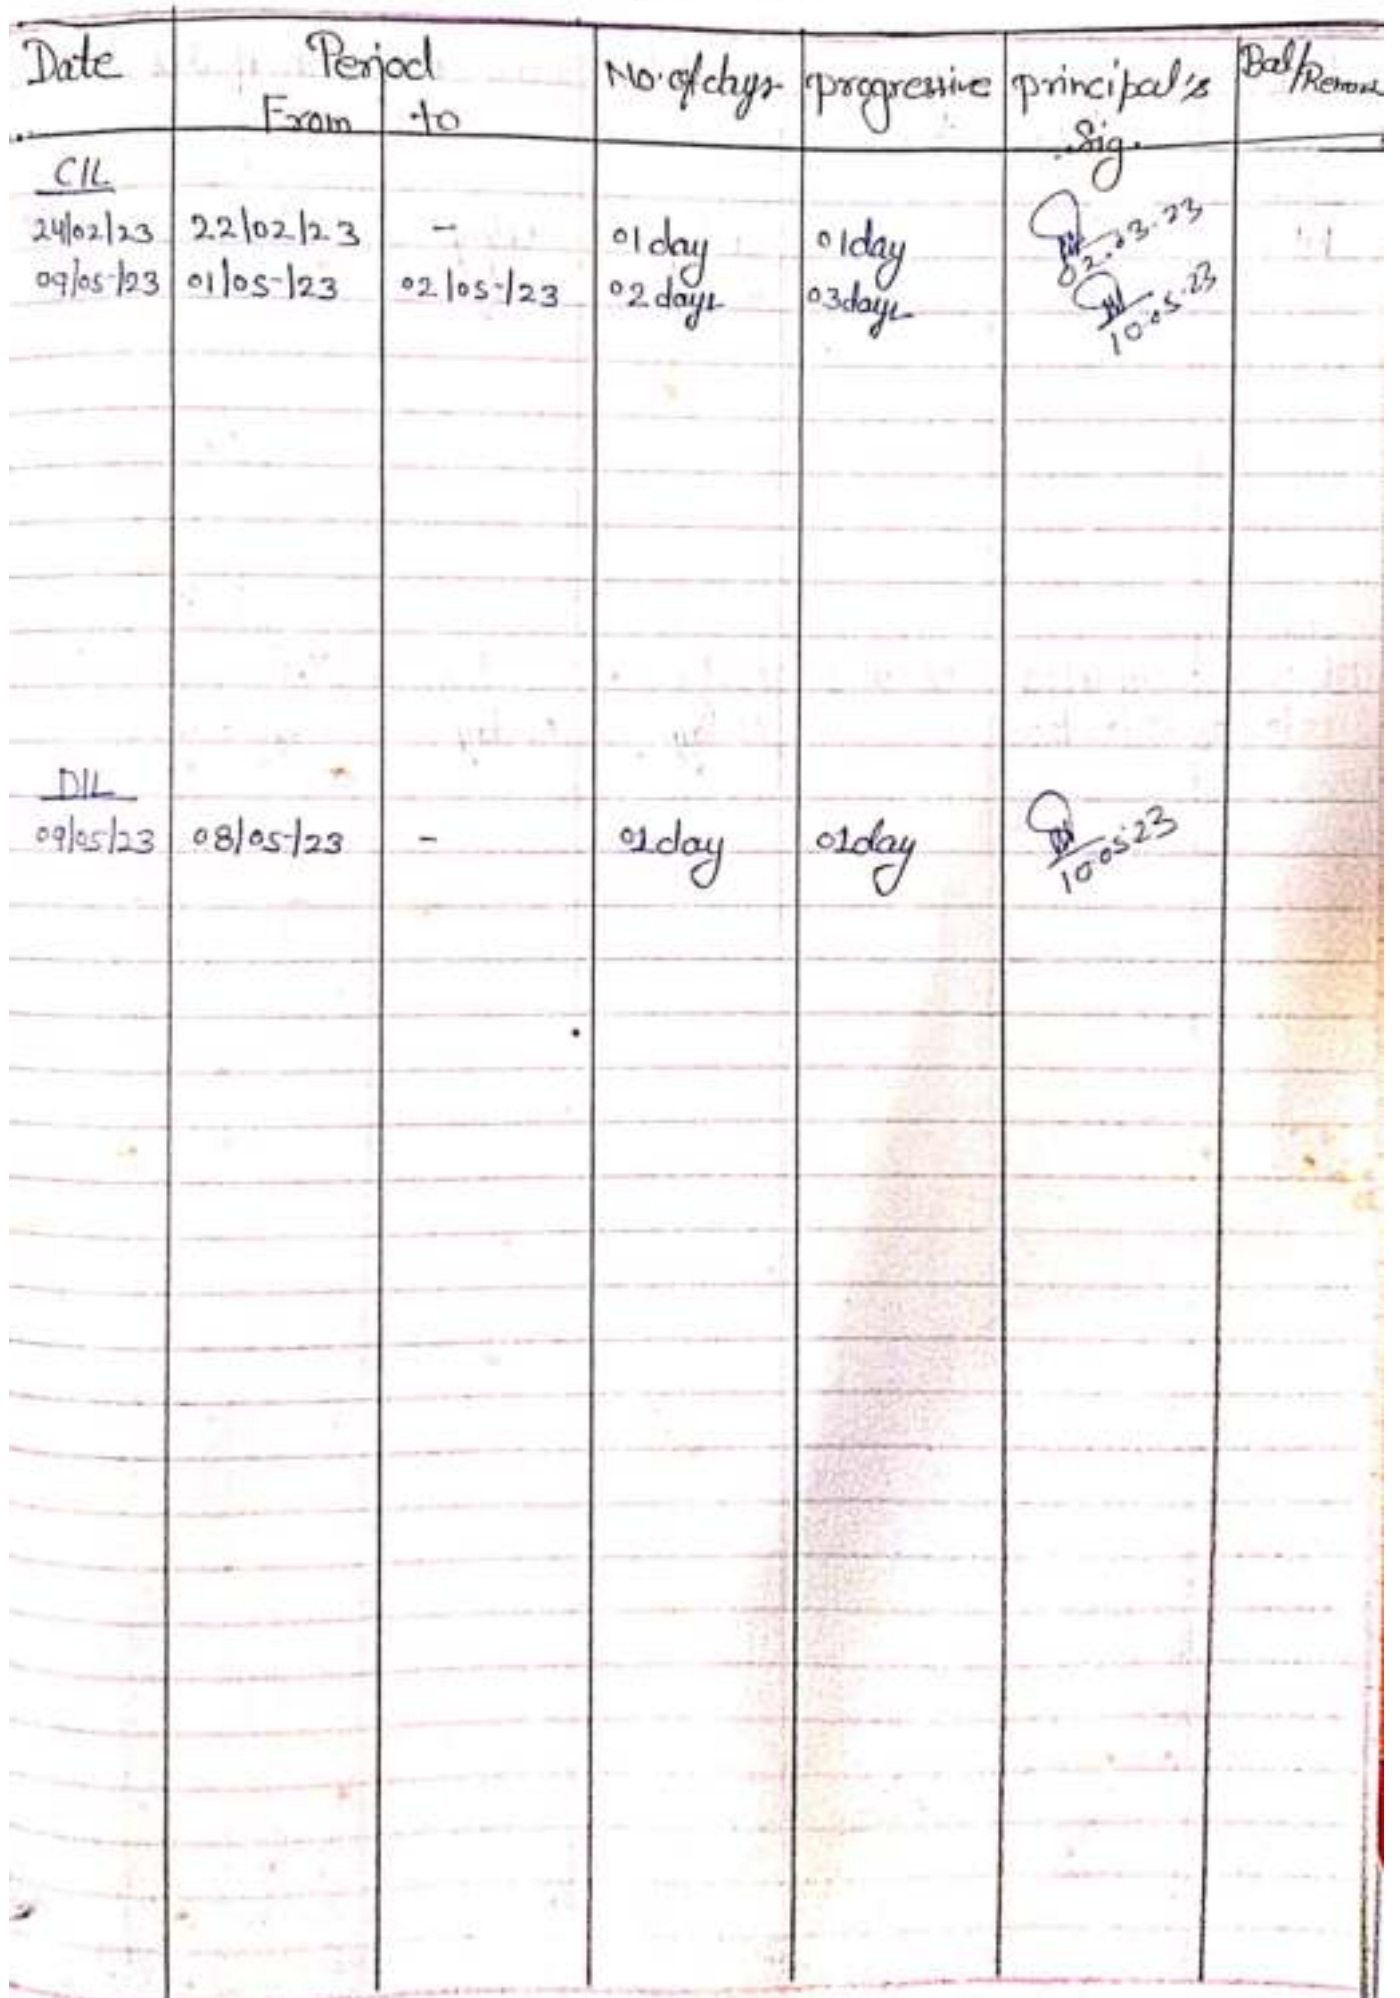 Date Period No. of days progressive principal's Bal/Remark
From to Sig.
C/L
24/02/23 22/02/23 - 01 day 01 day 02.03.23
09/05/23 01/05/23 02/05/23 02 days 03 days 10.05.23
D/L
09/05/23 08/05/23 - 01 day 01 day 10.05.23